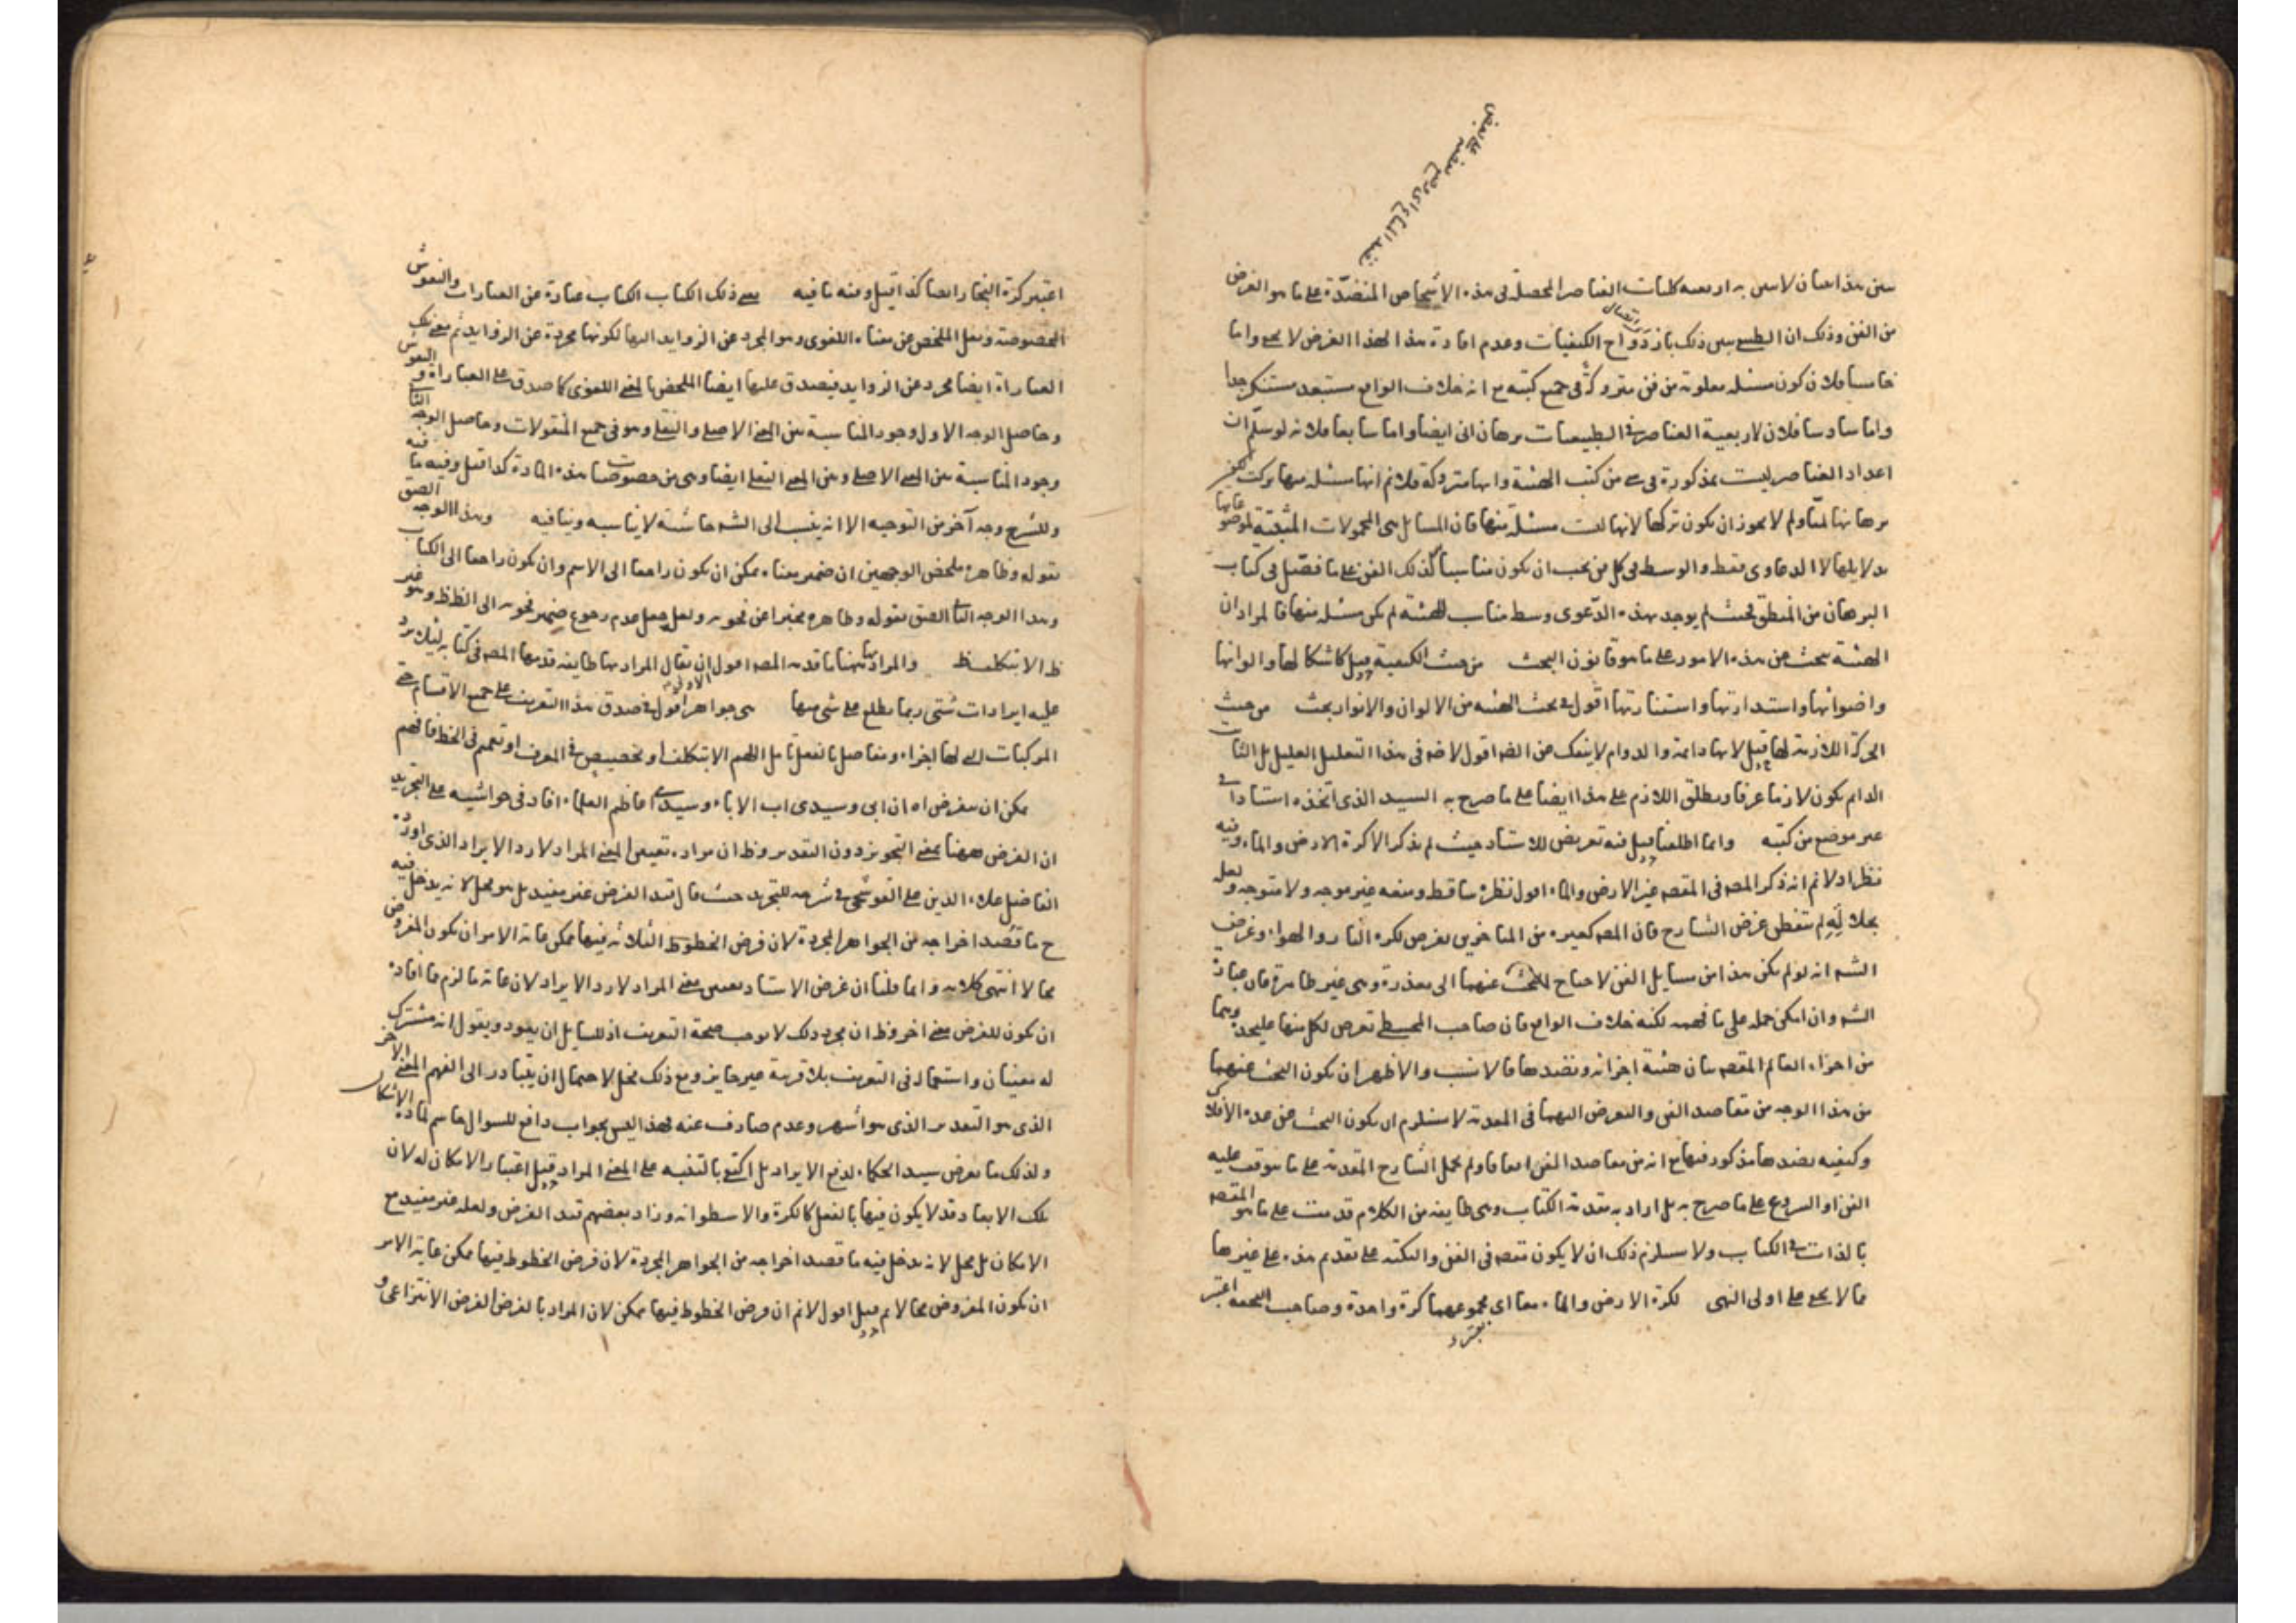 نضد المتاع اي وضع بعضه على بعض
من هذا البيان لا سن به اربعه كليات العناصر المحصلة فى هذه الاشخاص المنضدّة على ما هو الغرض
من الفن وذلك ان الطبيعى بين ذلك بازدواج الكيفيات وعدم افادة هذا لهذا الغرض لا يخفى واما
خامسا فلان كون مسئله معلومة من فن متروكة فى جميع كتبه مع انه خلاف الواقع مستبعد مستنكر جدا
واما سادسا فلان لاربعية العناصر فى الطبيعيات برهان انى ايضا واما سابعا فلانه لو سلم ان
اعداد العناصر ليست بمذكورة فى شئ من كتب الهيئة وانها متروكة فلا نم انها مسئله منها تركت
برهانها لميّا ولم لا يجوز ان يكون تركها لانها ليست مسئلة منها فان المسائل هى المحمولات المثبتة لموضوعاتها
بدلايلها لا الدعاوى فقط والوسط فى كل فن يجب ان يكون مناسبا لذلك الفن على ما فصّل فى كتاب
البرهان من المنطق فحيث لم يوجد بهذه الدعوى وسط مناسب للهيئة لم يكن مسئله منها فالمراد ان
الهيئة يبحث عن هذه الامور على ما هو قانون البحث من حيث الكيفية قيل كاشكالها والوانها
واضوائها واستدارتها واستنارتها اقول فى بحث الهيئه من الالوان والانوار بحث من حيث
الحركة اللازمة لها قيل لانها دائمة والدوام لا ينفك عن اقول لا خفا فى هذا التعليل العليل بل الثابت
الدائم يكون لازما عرفا ويطلق اللازم على هذا ايضا على ما صرح به السيد الذى اتخذه استادا فى
غير موضع من كتبه وانما اطلعنا قيل فيه تعريض للاستاد حيث لم يذكر الا كرة الارض والماء وفيه
نظر اذ لا نم انه ذكر المص فى المقصد غير الارض والماء اقول نظره ساقط ومنعه غير موجه ولا متوجه ولعل
بجلاله لم يتفطن غرض الشارح فان المص كغيره من المتاخرين تعرض لكرة النار والهواء وغرض
الشه انه لو لم يكن هذا من مسايل الفن لاحتاج للبحث عنهما الى معذرة وهى غير ظاهرة فان عبارة
الشه وان امكن حمله على ما فهمه لكنه خلاف الواقع فان صاحب المجسطى تعرض لكل منها عليحدة وهما
من اجزاء العالم المقصد بيان هيئة اجزائه ونضدها فالانسب والاظهر ان يكون البحث عنهما
من هذا الوجه من مقاصد الفن والتعرض اليهما فى المقدمة لا يستلزم ان يكون البحث عن عدد الافلاك
وكيفيه نضدها مذكور فيها مع انه من مقاصد الفن اتفاقا ولم يحمل الشارح المقدمة على ما يتوقف عليه
الفن او الشروع على ما صرح به بل اراد به مقدمة الكتاب وهى طايفه من الكلام قدمت على ما هو المقصد
بالذات فى الكتاب ولا يستلزم ذلك ان لا يكون مقصد فى الفن والنكته على تقديم هذه على غيرها
مما لا يخفى على اولى النهى لكرة الارض والماء معا اى مجموعهما كرة واحدة وصاحب التحفه اعتبر
اعتبر كرة البخار ايضا كذا قيل وفيه ما فيه سمى ذلك الكتاب الكتاب عبارة عن العبارات والنقوش
المخصوصة ونقل الملخص عن معناه اللغوى وهو المجرد عن الزوايد اليها لكونها مجردة عن الزوايد ثم معنى تلك
العبارة ايضا مجرد عن الزوايد فيصدق عليها ايضا الملخص بالمعنى اللغوى كما صدق على العبارة والنقوش
وحاصل الوجه الاول وجود المناسبة بين المعنى الاصلى والنقلى وهو فى جميع المنقولات وحاصل الوجه الثانى
وجود المناسبة بين المعنى الاصلى وبين المعنى النقلى ايضا وهى من خصوصيات هذه المادة كذا قيل وفيه ما فيه
وللشرح وجه آخر من التوجيه الا انه ينسب الى الشه حاشية لا يناسبه وينافيه وهذا الوجه الصق
بقوله وظاهره ملخص الوجهين ان ضمير معناه يمكن ان يكون راجعا الى الاسم وان يكون راجعا الى الكتاب
وهذا الوجه الثانى الصق بقوله وظاهره مخبرا عن نحويه ولعل جعل عدم رجوع ضمير نحويه الى الظ ظ وهو غير
ظ الا بتكلف ظ والمراد بها ههنا ما قدمه المص اقول ان يقال المراد بها طايفه قدمها المص فى كتابه لئلا يرد
عليه ايرادات شتى ربما يطلع على شئ منها هى جواهر اقول فى صدق هذا التعريف على جميع الاقسام حتى
المركبات التى لها اجزاء ومفاصل بالفعل تامل اللهم الا بتكلف او تخصيص فى المعرف او تعميم فى الخط فافهم
يمكن ان يفرض اه ان ابى وسيدى اب الاباء وسيد اعاظم العلماء افاد فى حواشيه على التجريد
ان الفرض ههنا بمعنى التجويز دون التقدير وظ ان مراده تعيين المعنى المراد لا رد الايراد الذى اورده
الفاضل علاء الدين على القوشجى فى شرحه للتجريد حيث قال قيد الفرض غير مفيد بل هو مخل لانه يدخل فيه
ح ما قصد اخراجه من الجواهر المجردة لان فرض الخطوط الثلاثه فيها ممكن غاية الامر ان يكون المفروض
محالا انتهى كلامه وانما قلنا ان غرض الاستاد تعيين معنى المراد لا رد الايراد لان غاية ما لزم مما افاده
ان يكون للفرض معنى اخر وظ ان مجرد ذلك لا يوجب صحة التعريف اذ للسايل ان يعود ويقول انه مشترك
له معنيان واستعماله فى التعريف بلا قرينة غير جايز ومع ذلك مخل لاحتمال ان يتبادر الى الفهم المعنى الاخر
الذى هو التقدير الذى هو اشهر وعدم صارف عنه فهذا ليس بجواب دافع للسوال حاسم لمادة الاشكال
ولذلك ما تعرض سيد الحكماء لدفع الايراد بل اكتفى بالتنبيه على المعنى المراد قيل اعتبار الامكان له لان
تلك الابعاد قد لا يكون فيها بالفعل كالكرة والاسطوانه وزاد بعضهم قيد الفرض ولعله غير مفيد مع
الامكان بل مخل لانه يدخل فيه ما قصد اخراجه من الجواهر المجردة لان فرض الخطوط فيها ممكن غاية الامر
ان يكون المفروض محالا ثم قيل اقول لا نم ان فرض الخطوط فيها ممكن لان المراد بالفرض الفرض الانتزاعى و